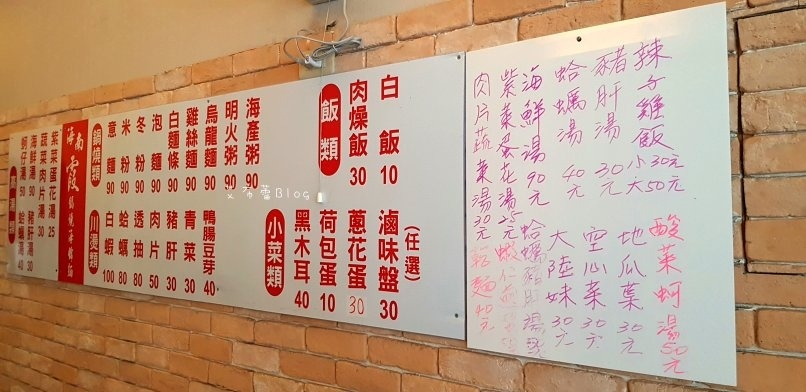 辣子雞飯 小30元 大50元
豬肝湯 30元
蛤蠣湯 40元
海鮮湯 90元
紫菜蛋花湯 25元
肉片蔬菜湯 30元
酸菜蚵湯 50元
地瓜葉 30元
空心菜 30元
大陸妹 30元
乾麵 40元
飯類
白飯 10
肉燥飯 30
小菜類
滷味盤 (任選) 30
蔥花蛋 30
荷包蛋 10
黑木耳 40
鍋燒類
海產粥 90
明火粥 90
烏龍麵 90
雞絲麵 90
白麵條 90
泡麵 90
冬粉 90
米粉 90
意麵 90
川燙類
鴨腸豆芽 40
青菜 30
豬肝 30
肉片 50
透抽 80
蛤蠣 80
白蝦 100
海南霞
紫菜蛋花湯 25
蔬菜肉片湯 30
海鮮湯 90
豬肝湯 30
蚵仔湯 50
蛤蠣湯 40
艾布蕾Blog